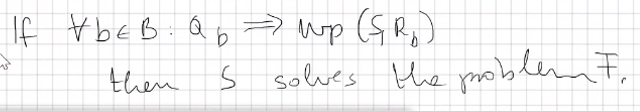 If ∀b∈B: Q_b ⟹ wp(S, R_b)
then S solves the problem F.